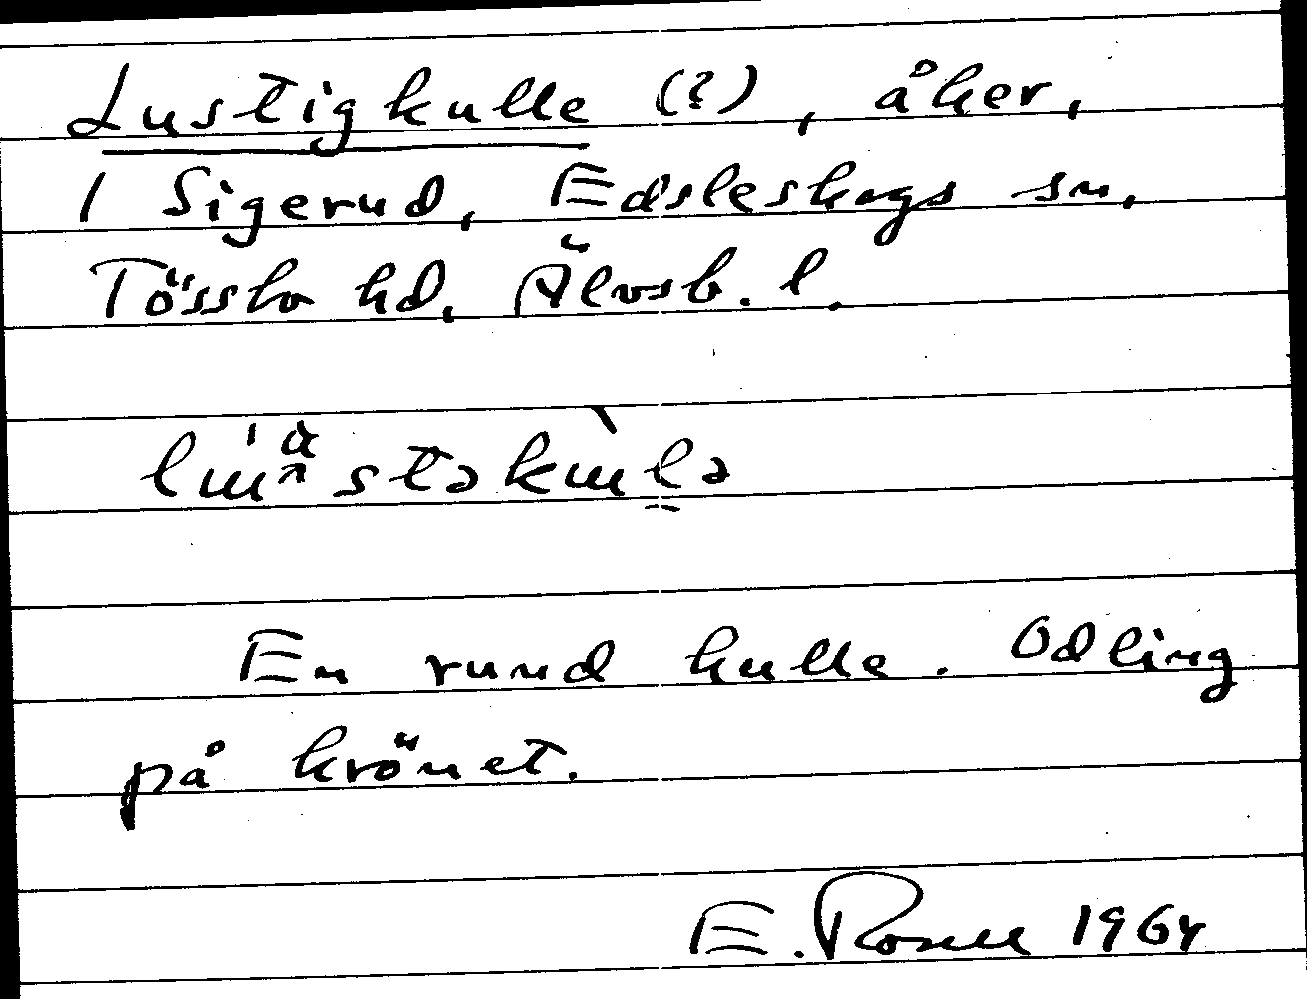 Lustigkulle (?), åker,
i Sigerud, Edsleskogs sn,
Tössbo hd. Älvsb. l.
En rund kulle. Odling
på krönet.
E. Rosell 1964